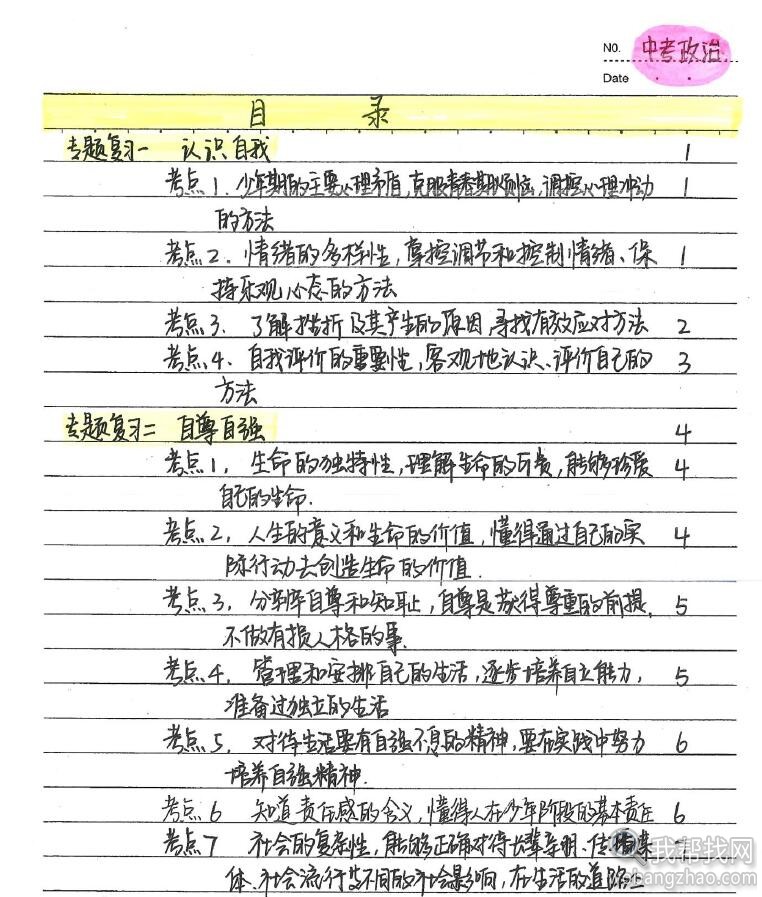 No. 中考政治
Date
目 录
专题复习一 认识自我 1
考点1. 少年期的主要心理矛盾,克服青春期烦恼,调控心理冲动 1
的方法
考点2. 情绪的多样性,掌控调节和控制情绪、保 1
持乐观心态的方法
考点3. 了解挫折及其产生的原因,寻找有效应对方法 2
考点4. 自我评价的重要性,客观地认识、评价自己的 3
方法
专题复习二 自尊自强 4
考点1, 生命的独特性,理解生命的可贵,能够珍爱 4
自己的生命.
考点2, 人生的意义和生命的价值,懂得通过自己的实 4
际行动去创造生命的价值.
考点3, 分辨自尊和知耻,自尊是获得尊重的前提, 5
不做有损人格的事.
考点4, 管理和安排自己的生活,逐步培养自立能力, 5
准备过独立的生活
考点5, 对待生活要有自强不息的精神,要在实践中努力 6
培养自强精神.
考点6 知道责任感的含义,懂得人在少年阶段的基本责任 6
考点7 社会的复杂性,能够正确对待长辈亲朋、传媒
体、社会流行等不同的社会影响,在生活的道路上
我帮找网
wobangzhao.com